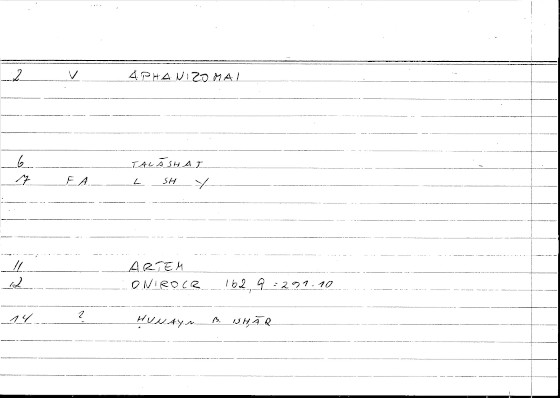 2 V APHANIZOMAI
6 TALĀSHAT
7 FA L SH Y
11 ARTEM
12 ONIROCR 162,9 = 291.10
14 ? ḤUNAYN B ISḤĀQ